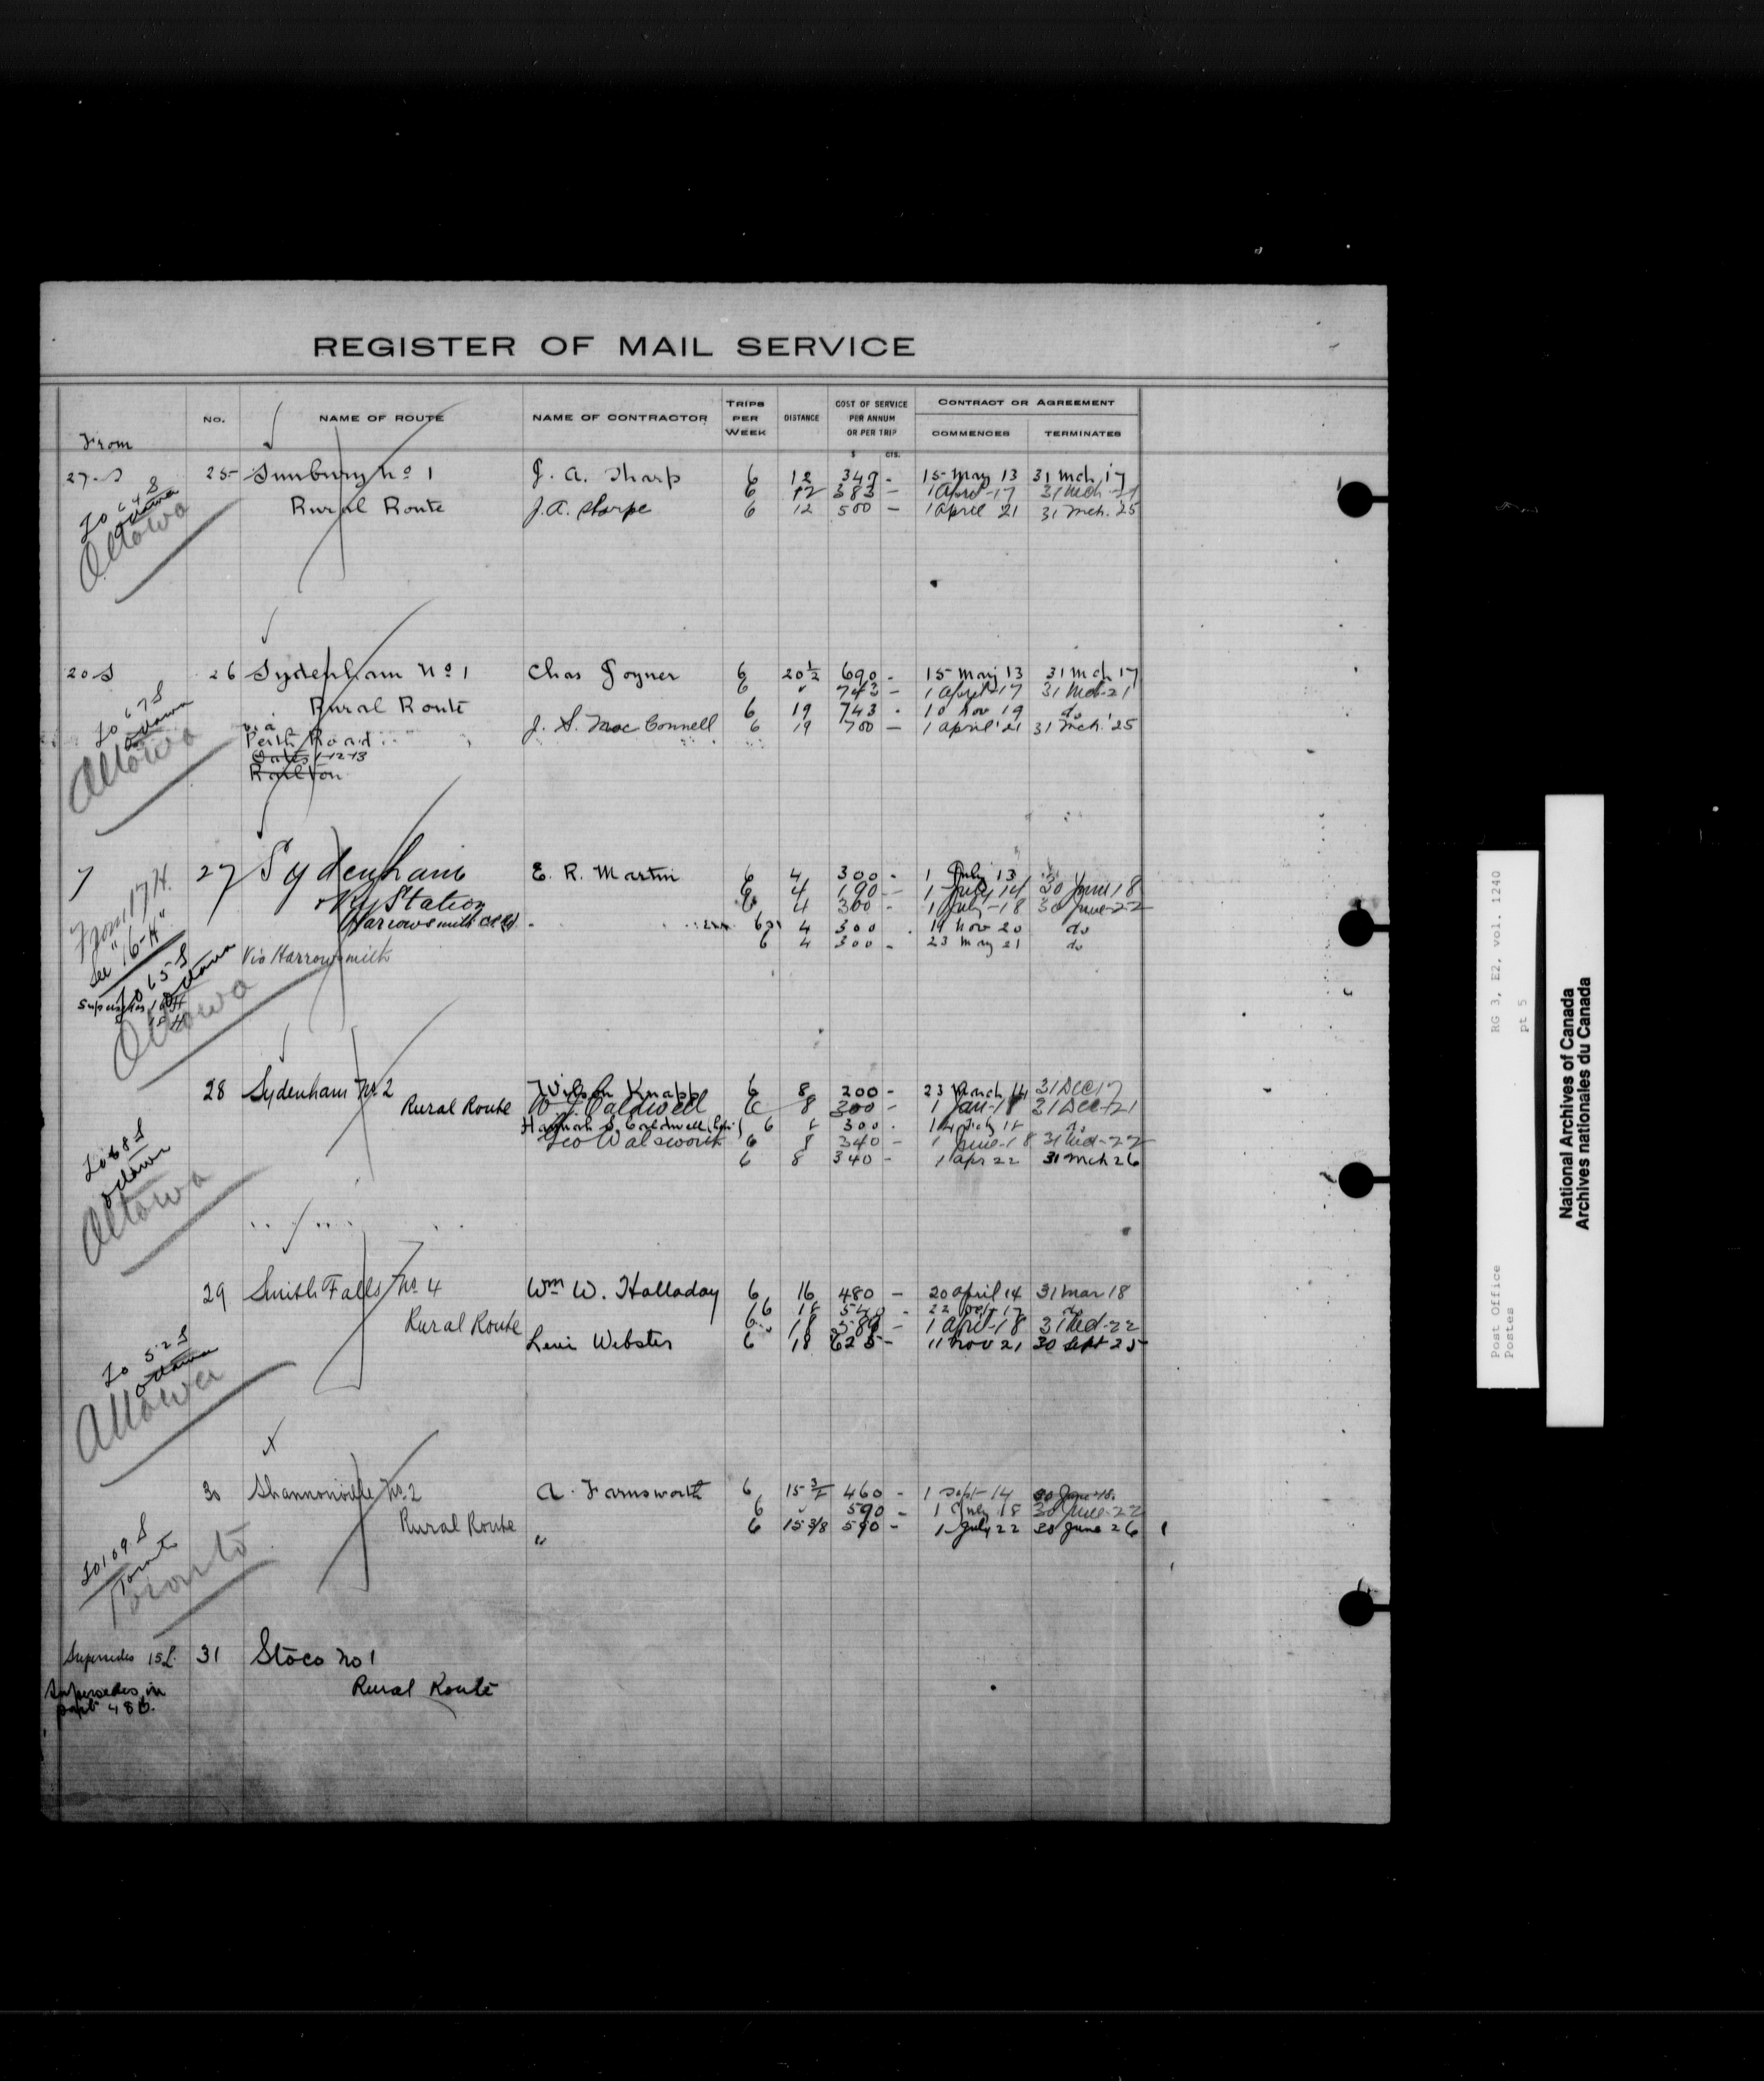 REGISTER OF MAIL SERVICE
From
NO.
NAME OF ROUTE
NAME OF CONTRACTOR
TRIPS PER WEEK
DISTANCE
COST OF SERVICE PER ANNUM OR PER TRIP
$ CTS.
CONTRACT OR AGREEMENT
COMMENCES
TERMINATES
27-S 25 Sunbury No 1 J. A. Tharp 6 12 340 - 15 May 13 31 Mch 17
6 12 383 - 1 April-17 31 Mch-21
Rural Route J.A. Sharpe 6 12 500 - 1 April 21 31 Mch. 25
To 64 S
Ottawa
Ottawa
20 S 26 Sydenham No 1 Chas Joyner 6 20 1/2 690 - 15 May 13 31 Mch 17
6 " 743 - 1 April-17 31 Mch-21
Rural Route 6 19 743 - 10 Nov 19 do
J. S. MacConnell 6 19 700 - 1 April '21 31 Mch. '25
via
Perth Road
Oates 1-12-13
Railton
To 67 S
Ottawa
Ottawa
7 27 Sydenham E. R. Martin 6 4 300 - 1 July 13
6 4 190 - 1 July 14 30 June 18
Ry Station 6 4 300 - 1 July-18 30 June-22
Harrowsmith 6 4 300 . 19 Nov 20 do
6 4 300 - 23 May 21 do
Via Harrowsmith
From 17 H.
See "16-H"
To 65-S
Ottawa
Supersedes 16H
15 H
Ottawa
28 Sydenham No. 2 Wilson Knapp 6 8 200 - 23 March 14 31 Dec 17
Rural Route W. J. Caldwell 6 8 300 - 1 Jan-18 31 Dec-21
Hannah S. Caldwell 6 8 300 . do
Geo Walsworth 6 8 340 - 1 June-18 31 Mch-22
6 8 340 - 1 Apr 22 31 Mch 26
To 68 S
Ottawa
Ottawa
29 Smith Falls No. 4 Wm W. Halladay 6 16 480 - 20 April 14 31 Mar 18
6 18 540 - 22 Oct 17 do
Rural Route 6 18 589 - 1 April-18 31 Mch-22
Levi Webster 6 18 625 - 11 Nov 21 30 Sept 25
To 52 S
Ottawa
Ottawa
30 Shannonville No. 2 A. Farnsworth 6 460 - 1 Sept-14 30 June 18.
6 " 590 - 1 July 18 30 June-22
Rural Route " 6 15 3/8 590 - 1 July 22 30 June 26
To 109 S
Toronto
Toronto
Supersedes 15 L. 31 Stoco No 1
Supersedes in part 48 B.
Rural Route
Post Office RG 3, E2, vol. 1240
Postes pt 5
National Archives of Canada
Archives nationales du Canada